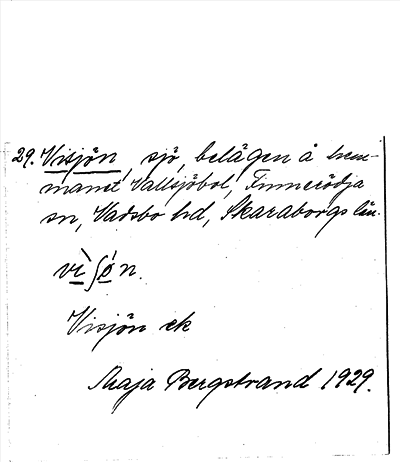 29. Visjön, sjö, belägen å hem-
manet Vallsjöbol, Finnerödja
sn, Vadsbo hd, Skaraborgs län.
vi̱ʃö̱n.
Visjön ek
Maja Bergstrand 1929.